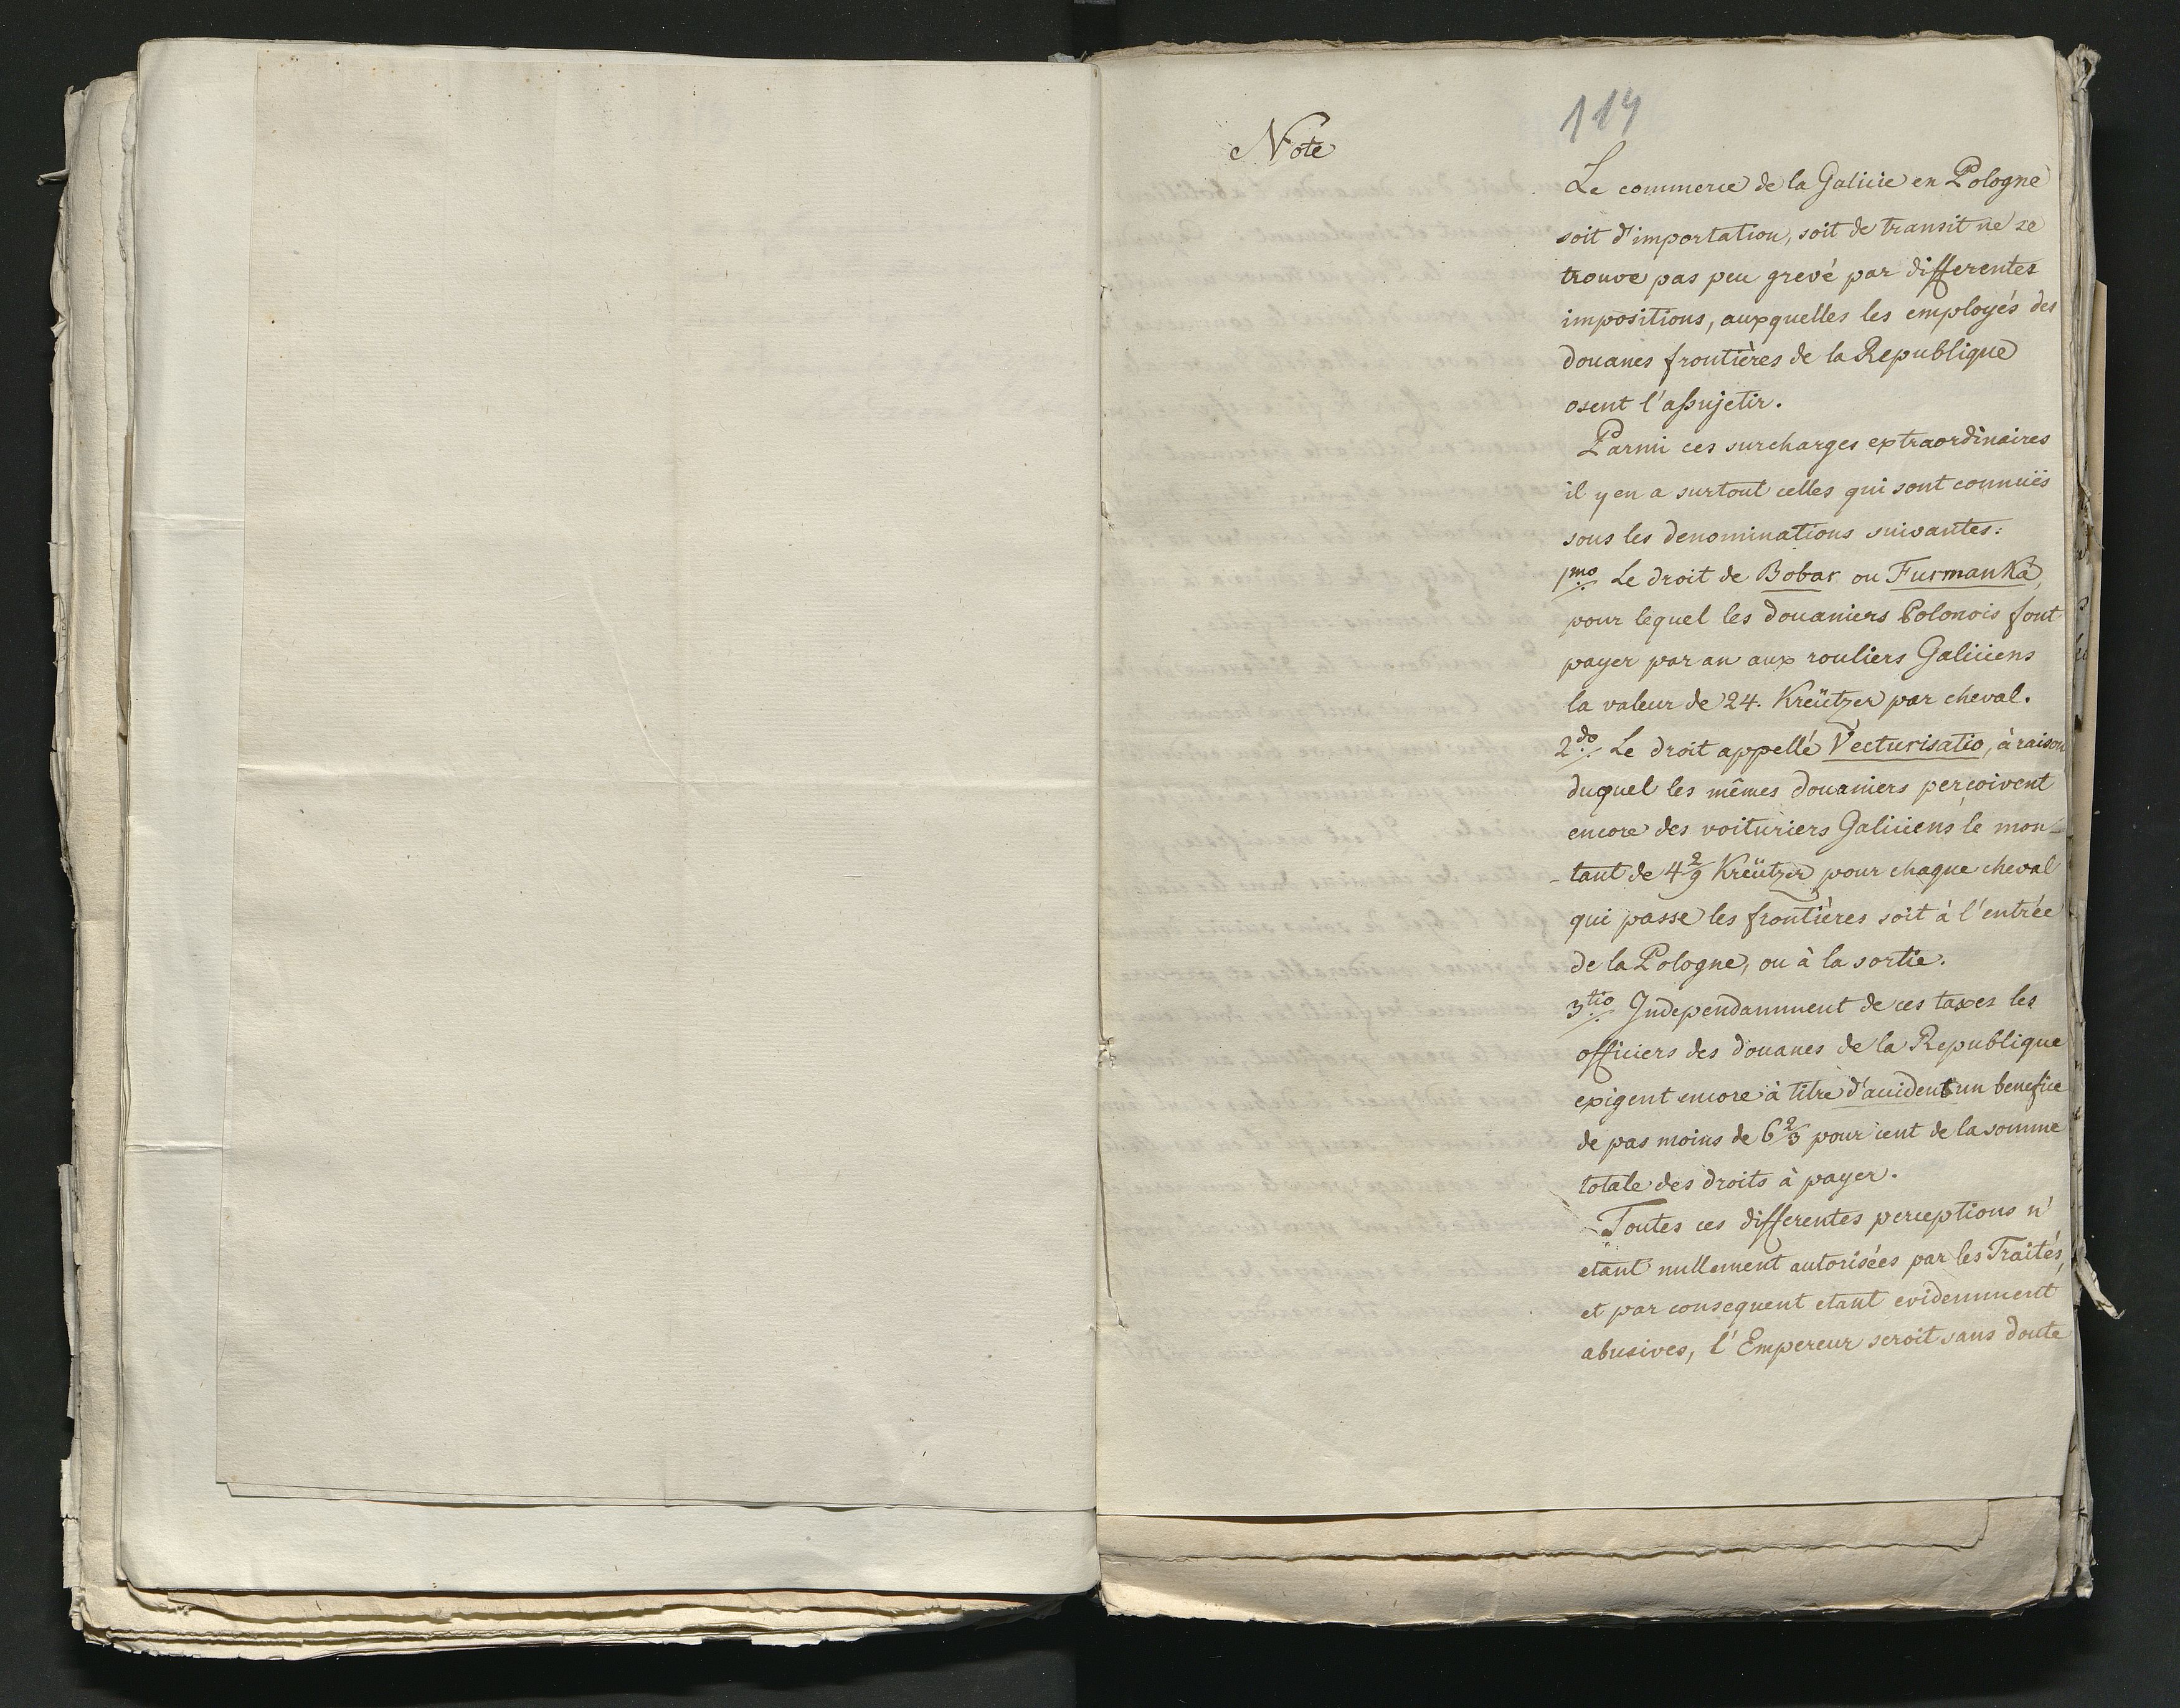 114
Note
Le commerce de la Galicie en Pologne
soit d'importation, soit de transit ne se
trouve pas peu grevé par differentes
impositions, auxquelles les employés des
douanes frontières de la Republique
osent l'assujetir.
Parmi ces surcharges extraordinaires
il y en a surtout celles qui sont connuës
sous les denominations suivantes:
1mo. Le droit de Bobar ou Furmanka,
pour lequel les douaniers Polonois font
payer par an aux rouliers Galiciens
la valeur de 24. Kreützer par cheval.
2do. Le droit appellé Vecturisatio, à raison
duquel les mêmes douaniers perçoivent
encore des voituriers Galiciens le mon-
-tant de 4 2/9 Kreützer pour chaque cheval
qui passe les frontières soit à l'entrée
de la Pologne, ou à la sortie.
3tio. Independamment de ces taxes les
officiers des douanes de la Republique
exigent encore à titre d'accident un benefice
de pas moins de 6 2/3 pour cent de la somme
totale des droits à payer.
Toutes ces differentes perceptions n'
etant nullement autorisées par les Traités,
et par consequent etant evidemment
abusives, l'Empereur seroit sans doute